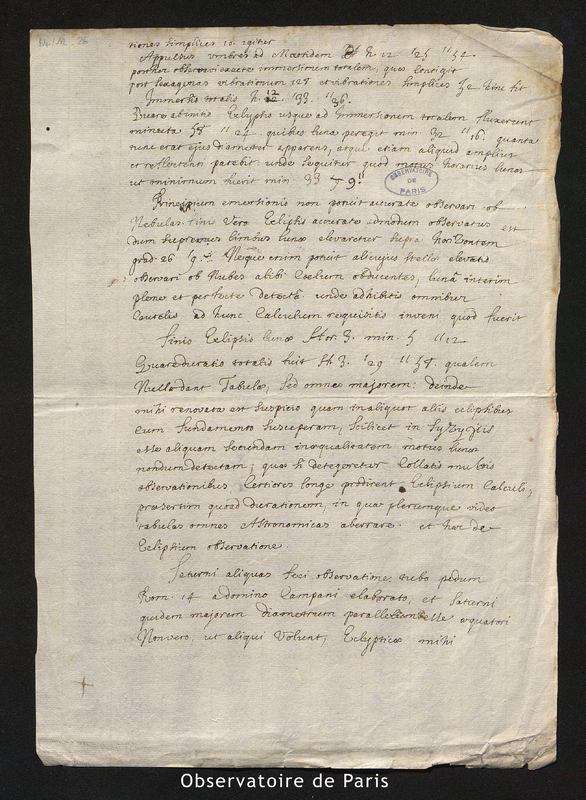 tiones simplices 10. igitur
Appulsus umbrae ad Maeotidem H. 12 '25 "52
post hor observavi exacte immersionem totalem, quae contigit
post sexagenas vibrationum 127 et vibrationes simplices 32 hinc fit
Immersio totalis H. 12. '33. "36.
Quare ab initio Eclypsis usque ad Immersionem totalem fluxerunt
minuta 58 "24. quibus luna peregit min. 32 "16. quanta
tunc erat ejus diameter apparens, atqui etiam aliquid amplius
et reflectenti patebit unde sequitur quod motus horarius lunae
ut minimum fuerit min 33 9"
OBSERVATOIRE DE PARIS
Principium emersionis non potuit accurate observari ob
Nebulas. finis vero Eclipsis accurate admodum observatus est
dum supremus limbus lunae elevaretur supra horizontem
grad. 26 Neque enim potuit alicujus stellae elevatio
observari ob Nubes alibi Coelum obducentes, lunâ interim
plene et perfecte detectâ unde adhibitis omnibus
cautelis ad hunc Calculum requisitis inveni quod fuerit
finis Eclipsis lunae Hor. 3. min. 5 "12
Quare duratio totalis fuit H. 3. '29 "58. qualem
Nullae dant Tabulae, sed omnes majorem: deinde
mihi renovata est suspicio quam in aliquot aliis eclipsibus
cum fundamento susceperam, scilicet in syzygiis
esse aliquam secundam inaequalitatem motus lunae
nondum detectam; quae si detegeretur Collatis multis
observationibus, certiores longe prodirent Eclipsium Calculi,
praesertim quoad durationem, in qua plerumque video
tabulas omnes Astronomicas aberrare. et haec de
Eclipsium observatione.
Saturni aliquas feci observationes tubo pedum
Rom. 14 a domino Campani elaborato, et Saturni
quidem majorem diametrum parallelum esse aequatori
Non vero, ut aliqui volunt, Eclypticae mihi
Observatoire de Paris